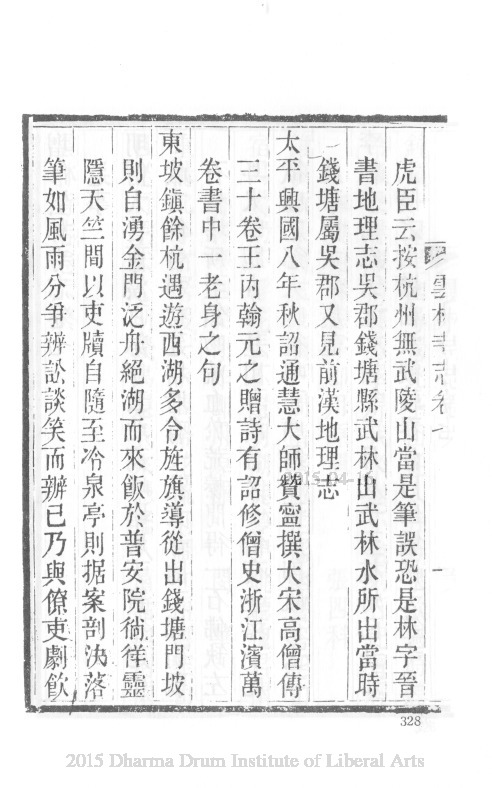 雲林寺志卷七
虎臣云按杭州無武陵山當是筆誤恐是林字晉
書地理志吳郡錢塘縣武林山武林水所出當時
錢塘屬吳郡又見前漢地理志
太平興國八年秋詔通慧大師贊寧撰大宋高僧傳
三十卷王內翰元之贈詩有詔修僧史浙江濱萬
卷書中一老身之句
東坡鎮餘杭遇遊西湖多令旌旗導從出錢塘門坡
則自湧金門泛舟絕湖而來飯於普安院徜徉靈
隱天竺間以吏牘自隨至冷泉亭則据案剖決落
筆如風雨分爭辨訟談笑而辦已乃與僚吏劇飲
328
2015-04-15
2015 Dharma Drum Institute of Liberal Arts